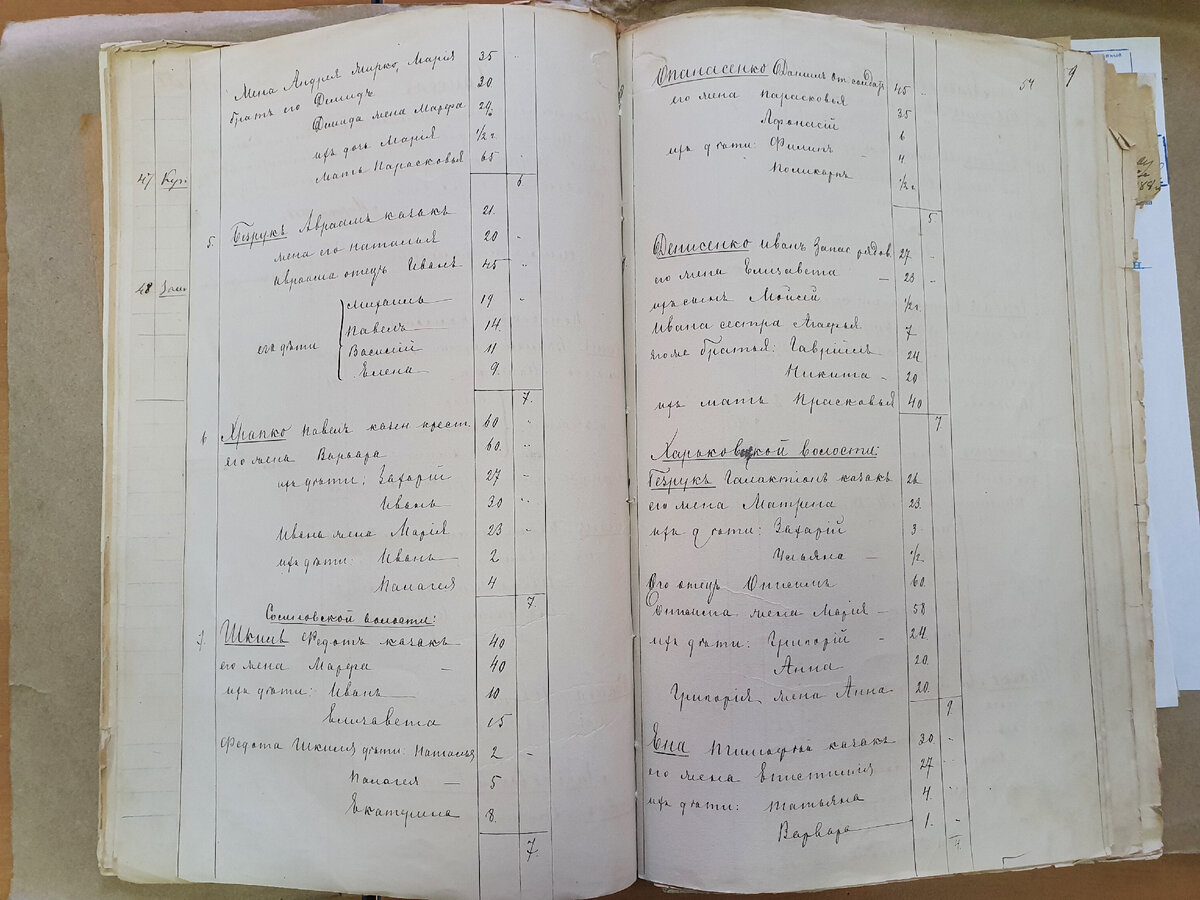 Жена Андрея Мирко, Марія 35
братъ его Демидъ 30
Демида жена Марфа 24
ихъ дочь Марія 1/2 г.
мать Парасковья 65
6.
47 Куз
5. Безрукъ Авраамъ казакъ 21.
жена его Наталья 20
Авраама отецъ Иванъ 45
48
его дѣти Михаилъ 19
Павелъ 14.
Василій 11
Елена 9.
7.
6 Храпко Павелъ казен. крест. 60
его жена Варвара 60.
ихъ дѣти: Захарій 27
Иванъ 30
Ивана жена Марія 23
ихъ дѣти: Иванъ 2
Палагея 4
7.
Сосновской волости:
7. Шкиль Федотъ казакъ 40
его жена Марфа 40
ихъ дѣти: Иванъ 10
Елизавета 15
Федота Шкиля дѣти: Наталья 2
Палагея 5
Екатерина 8.
7.
54 9
Опанасенко Даніилъ от. солдат 45
его жена Парасковья 35
Афонасій 6
ихъ дѣти: Филипъ 4
Поликарпъ 1/2 г.
5
Денисенко Иванъ Запас. рядов. 27
его жена Елизавета 23
ихъ сынъ Мойсей 1/2 г.
Ивана сестра Агафья 7
его же братья: Гаврійлъ 24
Никита 20
ихъ мать Прасковья 40
7
Харьковской волости:
Безрукъ Галактіонъ казакъ 26
его жена Матрена 23.
ихъ дѣти: Захарій 3
Ульяна 1/2.
Его отецъ Онисимъ 60.
Онисима жена Марія 58
ихъ дѣти: Григорій 24.
Анна 20.
Григорія жена Анна 20.
9
Ена казакъ 30.
его жена 27
ихъ дѣти: Татьяна 4.
Варвара 1.
4.